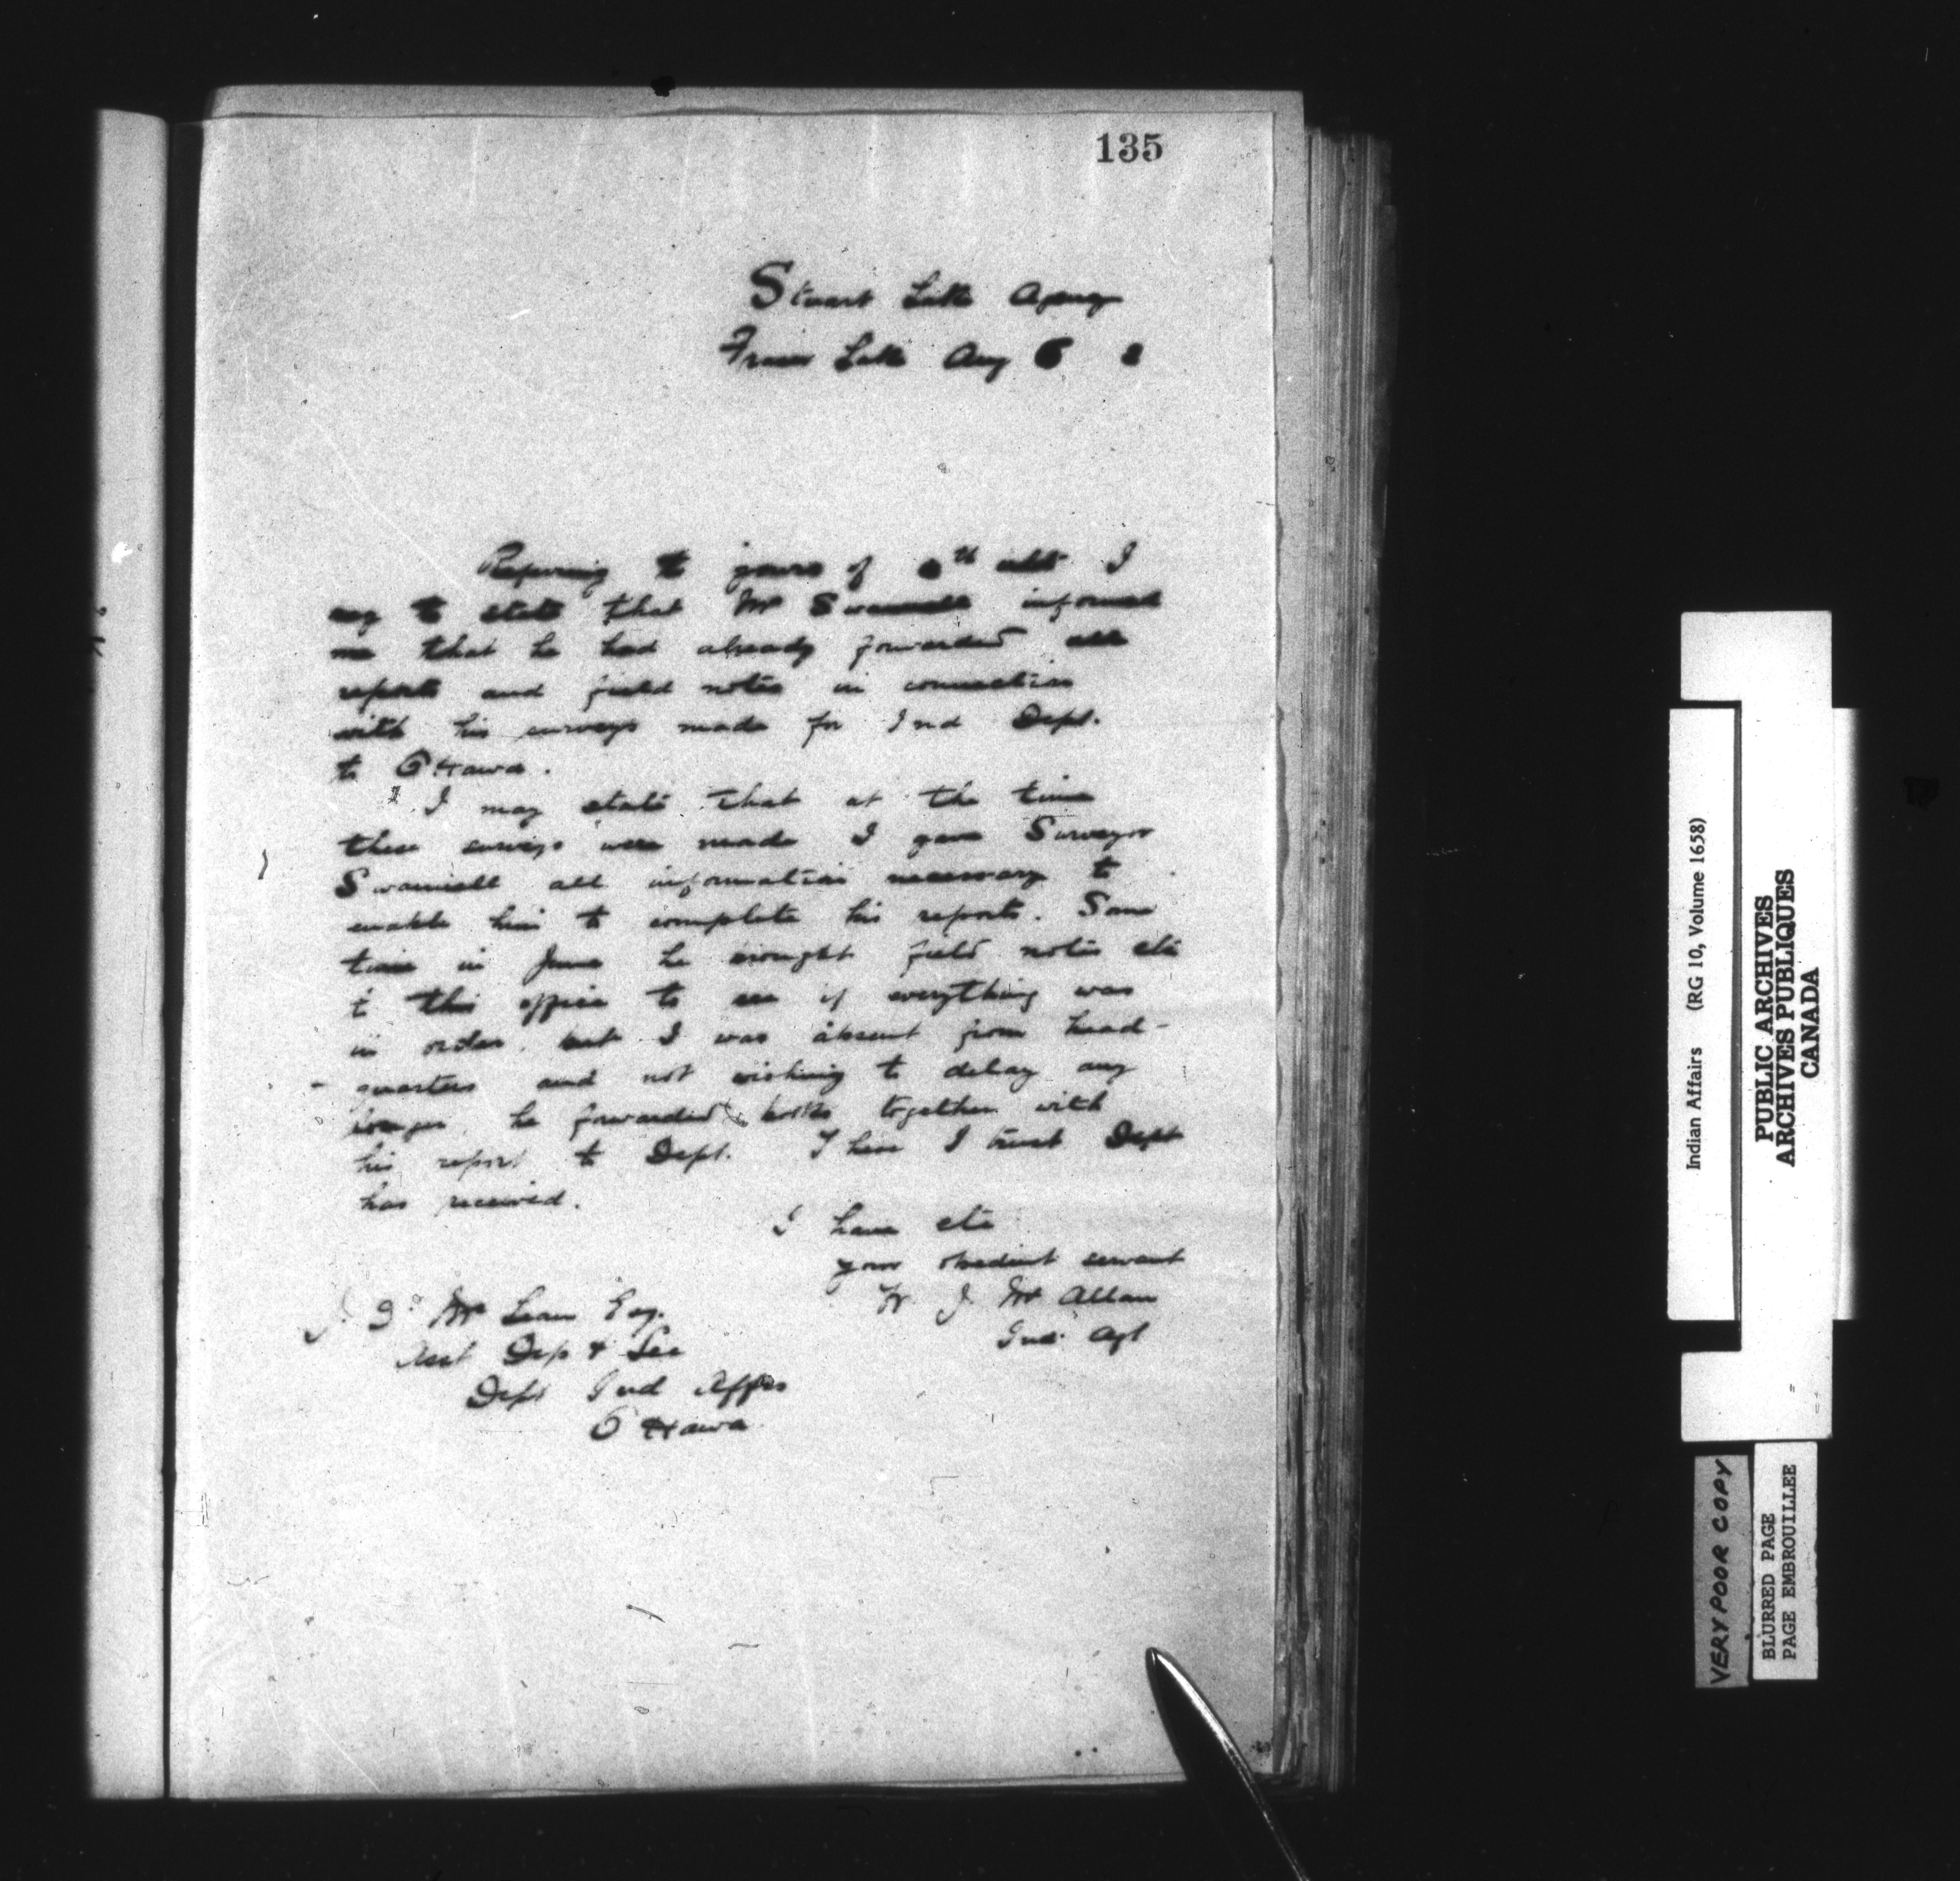 135
Stuart Lake Agency
Fraser Lake Aug 6
Referring to yours of ult I
beg to state that Mr Swannell informed
me that he had already forwarded all
reports and field notes in connection
with his surveys made for Ind Dept.
to Ottawa.
I may state that at the time
these surveys were made I gave Surveyor
Swannell all information necessary to
enable him to complete his reports. Some
time in June he brought field notes etc
to this office to see if everything was
in order but I was absent from head-
quarters and not wishing to delay any
longer he forwarded books together with
his report to Dept. These I trust Dept
has received.
I have etc
your obedient servant
W. J. Mc Allan
Ind. Agt
J. D. Mc Lean Esq.
Asst Dep & Sec
Dept Ind Affrs
Ottawa
Indian Affairs (RG 10, Volume 1658)
PUBLIC ARCHIVES
ARCHIVES PUBLIQUES
CANADA
VERY POOR COPY
BLURRED PAGE
PAGE EMBROUILLEE